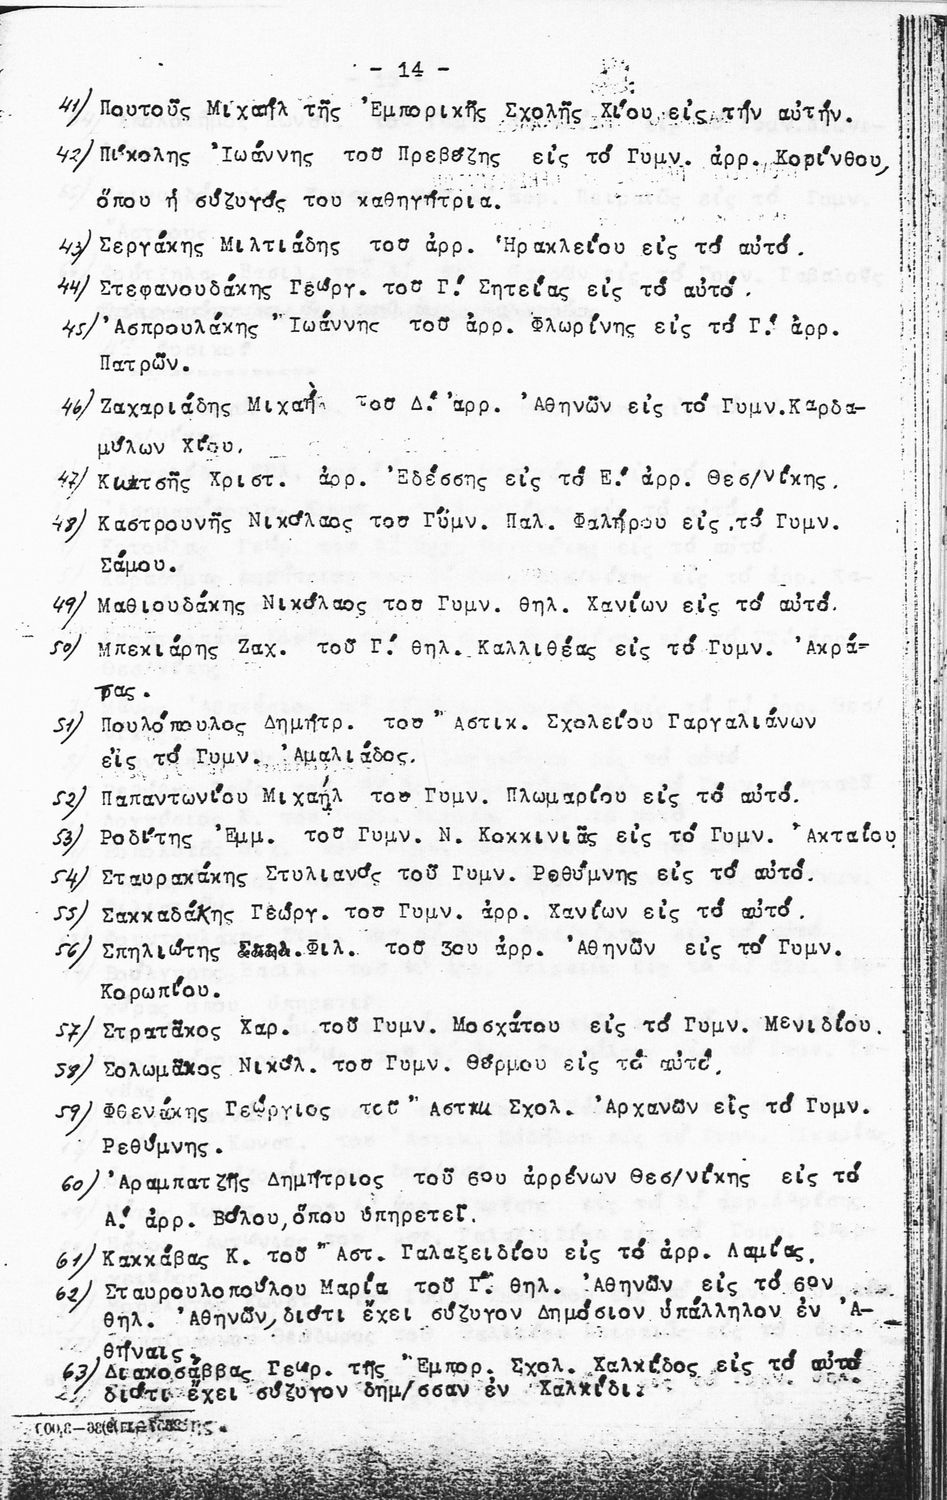 - 14 -
41) Πουτούς Μιχαήλ τῆς Ἐμπορικῆς Σχολῆς Χίου εἰς τήν αὐτήν.
42) Πίκολης Ἰωάννης τοῦ Πρεβέζης εἰς τό Γυμν. ἀρρ. Κορίνθου,
ὅπου ἡ σύζυγός του καθηγήτρια.
43) Σεργάκης Μιλτιάδης τοῦ ἀρρ. Ἡρακλείου εἰς τό αὐτό.
44) Στεφανουδάκης Γεώργ. τοῦ Γ! Σητείας εἰς τό αὐτό.
45) Ἀσπρουλάκης Ἰωάννης τοῦ ἀρρ. Φλωρίνης εἰς τό Γ! ἀρρ.
Πατρῶν.
46) Ζαχαριάδης Μιχαήλ τοῦ Δ! ἀρρ. Ἀθηνῶν εἰς τό Γυμν.Καρδα-
μύλων Χίου.
47) Κωτσῆς Χριστ. ἀρρ. Ἐδέσσης εἰς τό Ε! ἀρρ. Θεσ/νίκης.
48) Καστρουνῆς Νικόλαος τοῦ Γύμν. Παλ. Φαλήρου εἰς τό Γυμν.
Σάμου.
49) Μαθιουδάκης Νικόλαος τοῦ Γυμν. θηλ. Χανίων εἰς τό αὐτό.
50) Μπεκιάρης Ζαχ. τοῦ Γ! θηλ. Καλλιθέας εἰς τό Γυμν. Ἀκρά-
τας.
51) Πουλόπουλος Δημήτρ. τοῦ Ἀστικ. Σχολείου Γαργαλιάνων
εἰς τό Γυμν. Ἀμαλιάδος.
52) Παπαντωνίου Μιχαήλ τοῦ Γυμν. Πλωμαρίου εἰς τό αὐτό.
53) Ροδίτης Ἐμμ. τοῦ Γυμν. Ν. Κοκκινιᾶς εἰς τό Γυμν. Ἀκταίου
54) Σταυρακάκης Στυλιανός τοῦ Γυμν. Ρεθύμνης εἰς τό αὐτό.
55) Σακκαδάκης Γεώργ. τοῦ Γυμν. ἀρρ. Χανίων εἰς τό αὐτό.
56) Σπηλιώτης Φιλ. τοῦ 3ου ἀρρ. Ἀθηνῶν εἰς τό Γυμν.
Κορωπίου.
57) Στρατᾶκος Χαρ. τοῦ Γυμν. Μοσχάτου εἰς τό Γυμν. Μενιδίου.
58) Σολωμᾶκος Νικόλ. τοῦ Γυμν. Θέρμου εἰς τό αὐτό.
59) Φθενάκης Γεώργιος τοῦ Ἀστικ Σχολ. Ἀρχανῶν εἰς τό Γυμν.
Ρεθύμνης.
60) Ἀραμπατζῆς Δημήτριος τοῦ 6ου ἀρρένων Θεσ/νίκης εἰς τό
Α! ἀρρ. Βόλου, ὅπου ὑπηρετεῖ.
61) Κακκάβας Κ. τοῦ Ἀστ. Γαλαξειδίου εἰς τό ἀρρ. Λαμίας.
62) Σταυρουλοπούλου Μαρία τοῦ Γ! θηλ. Ἀθηνῶν εἰς τό 6ον
θηλ. Ἀθηνῶν, διότι ἔχει σύζυγον Δημόσιον ὑπάλληλον ἐν Ἀ-
θήναις.
63) Διακοσάββας Γεωρ. τῆς Ἐμπορ. Σχολ. Χαλκίδος εἰς τό αὐτό
διότι ἔχει σύζυγον δημ/σσαν ἐν Χαλκίδι.